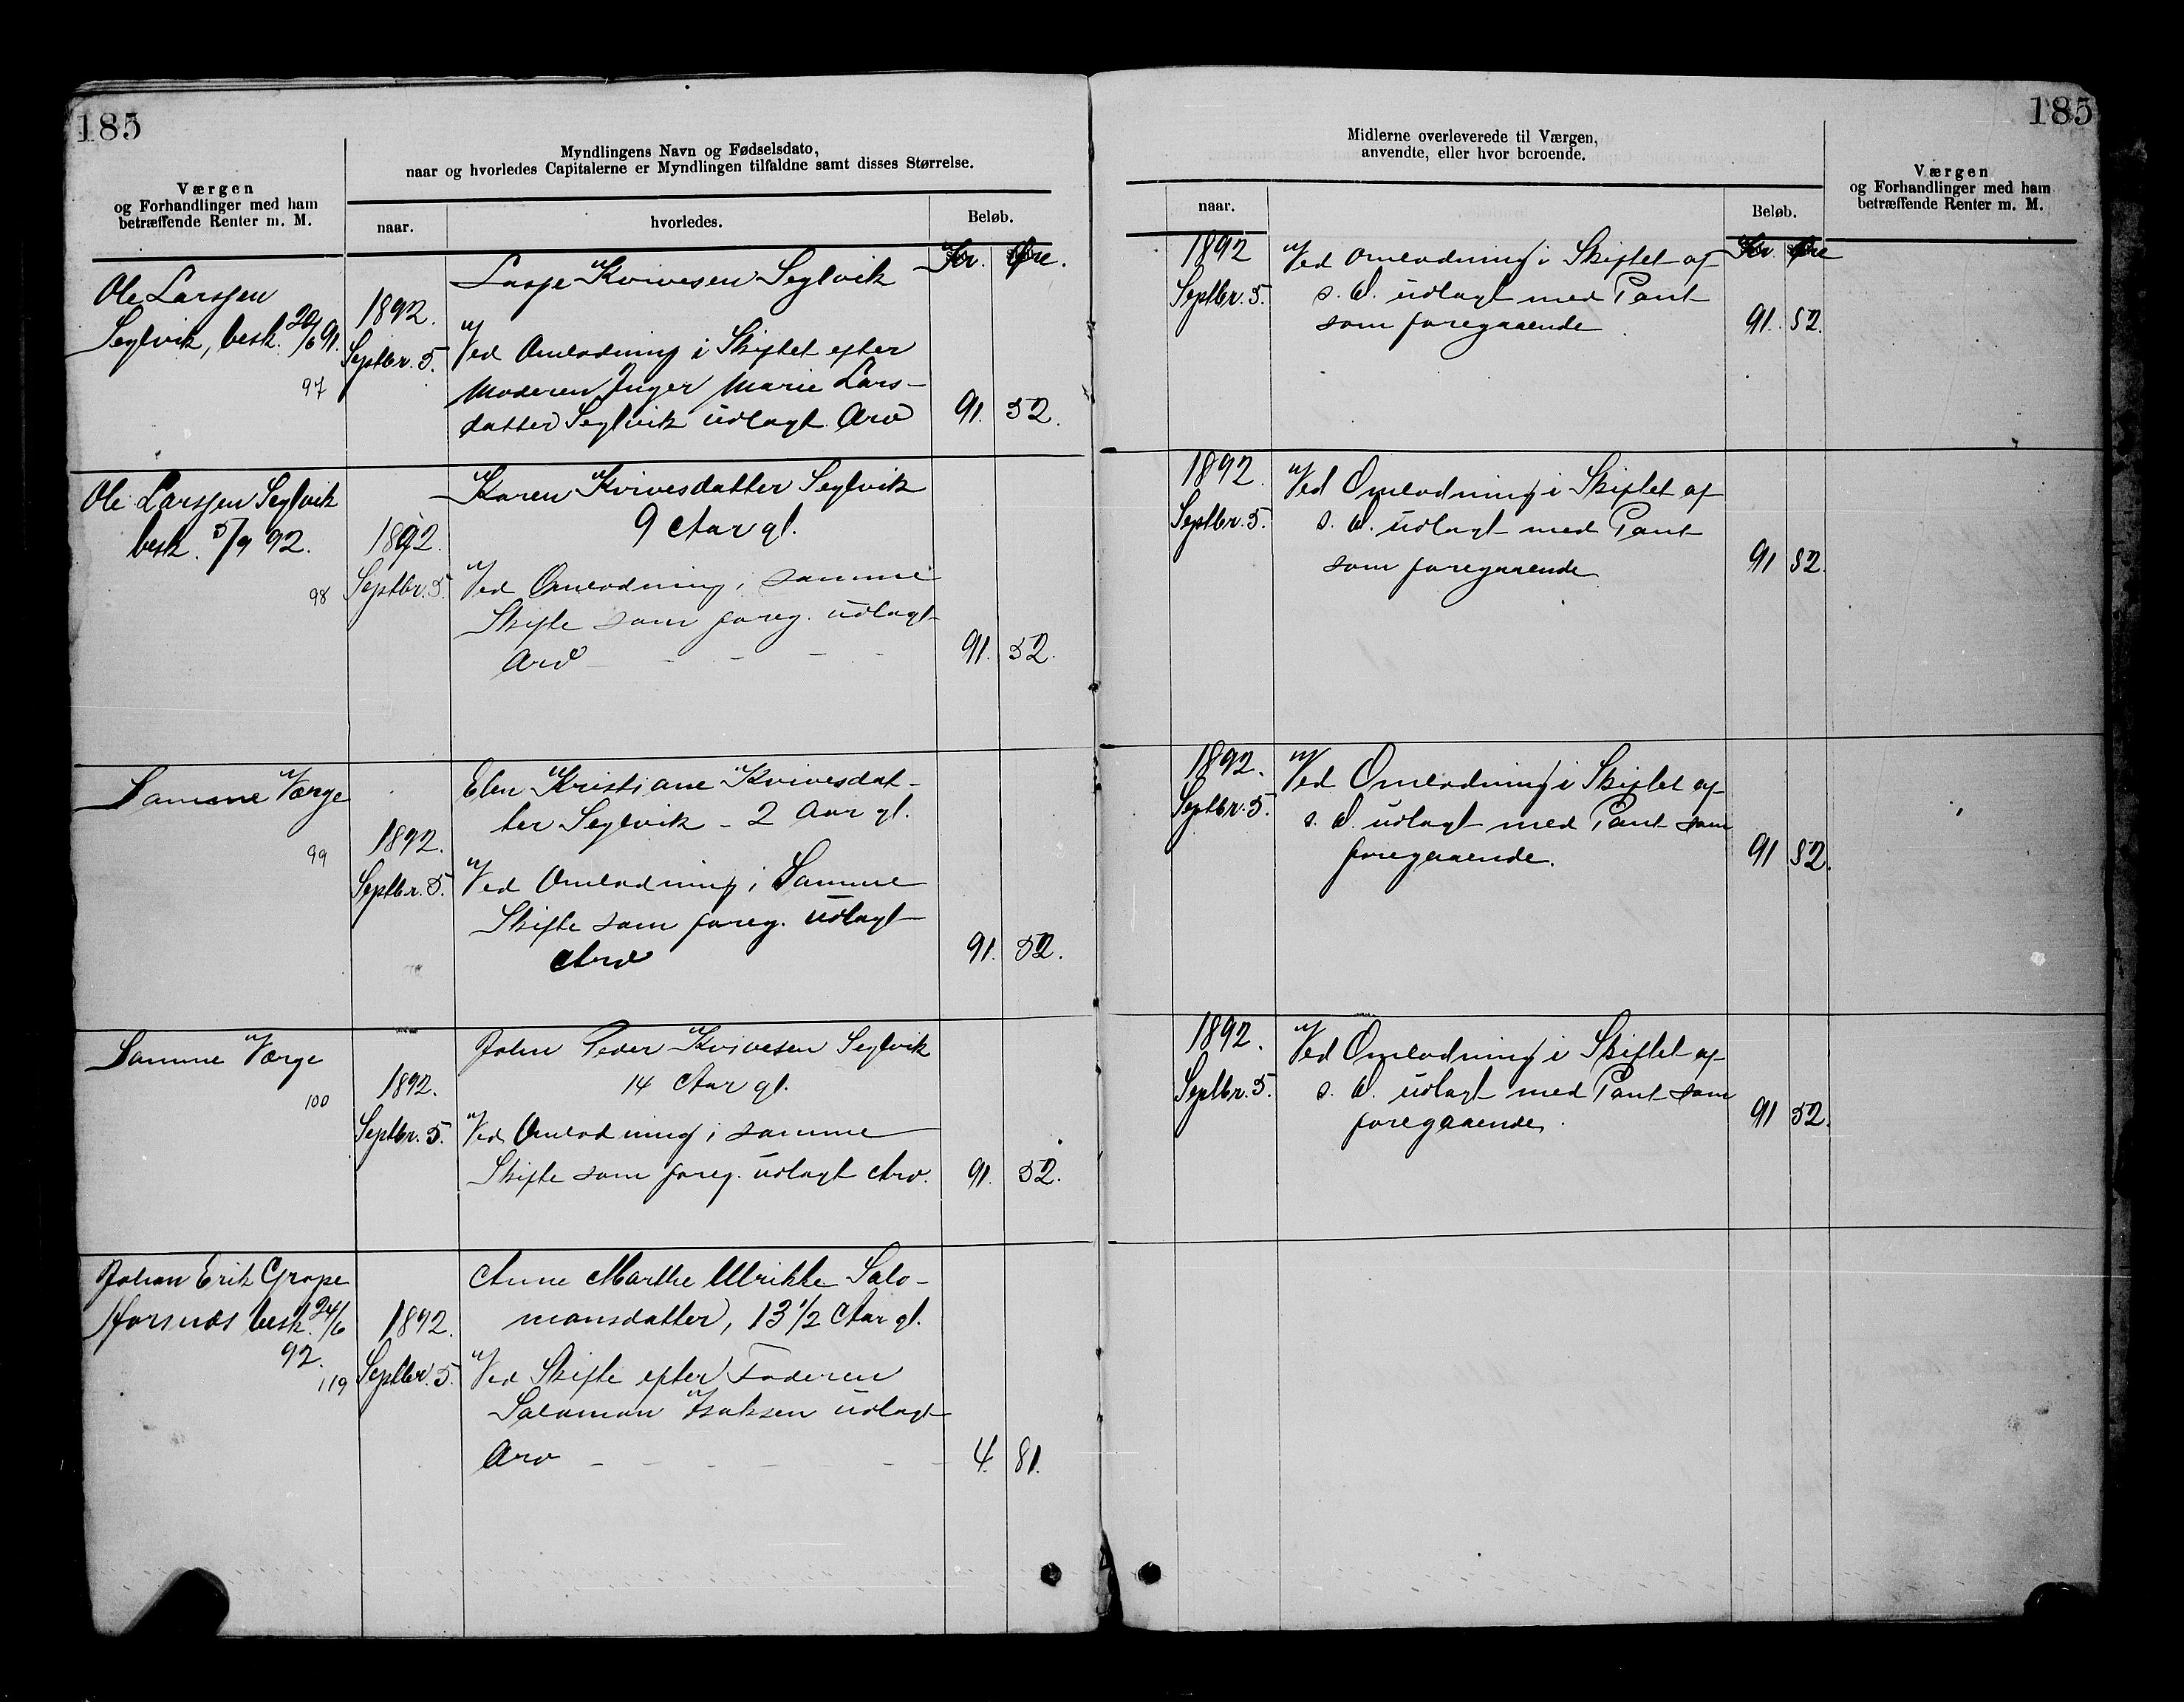 185
Værgen
og Forhandlinger med ham
betræffende Renter m. M.
Myndlingens Navn og Fødselsdato,
naar og hvorledes Capitalerne er Myndlingen tilfaldne samt disses Størrelse.
naar.
hvorledes.
Beløb.
Kr. Øre.
Ole Larssen
Seglvik, besk. 20/6 91.
97
1892.
Septbr. 5.
Kvivesen Seglvik
Ved Omlodning i Skiftet efter
Moderen Inger Marie Lars-
datter Seglvik udlagt Arv 91. 52.
Ole Larssen Seglvik
besk. 5/9 92.
98
1892.
Septbr. 5.
Karen Kvivesdatter Seglvik
9 Aar gl.
Ved Omlodning i samme
Skifte som foreg. udlagt
Arv - - - - - 91. 52.
Samme Værge
99
1892.
Septbr. 5.
Elen Kristiane Kvivesdat-
ter Seglvik - 2 Aar gl.
Ved Omlodning i Samme
Skifte som foreg. udlagt
Arv 91. 52.
Samme Værge
100
1892.
Septbr. 5.
John Peder Kvivesen Seglvik
14 Aar gl.
Ved Omlodning i samme
Skifte som foreg. udlagt Arv. 91. 52.
Johan Erik Grape
besk. 24/6
92.
119
1892.
Septbr. 5.
Anne Marthe Ulrikke Salo-
monsdatter, 13 1/2 Aar gl.
Ved Skifte efter Faderen
Salamon Isaksen udlagt
Arv - - - - - - - 4. 81.
185
Midlerne overleverede til Værgen,
anvendte, eller hvor beroende.
naar.
Beløb.
Værgen
og Forhandlinger med ham
betræffende Renter m. M.
Kr. Øre
1892
Septbr. 5.
Ved Omlodning i Skiftet af
s. D. udlagt med Pant
som foregaaende 91. 52.
1892.
Septbr. 5.
Ved Omlodning i Skiftet af
s. D. udlagt med Pant
som foregaaende 91 52.
1892.
Septbr. 5.
Ved Omlodning i Skiftet af
s. D. udlagt med Pant som
foregaaende. 91 52.
1892.
Septbr. 5.
Ved Omlodning i Skiftet af
s. D. udlagt med Pant som
foregaaende. 91 52.